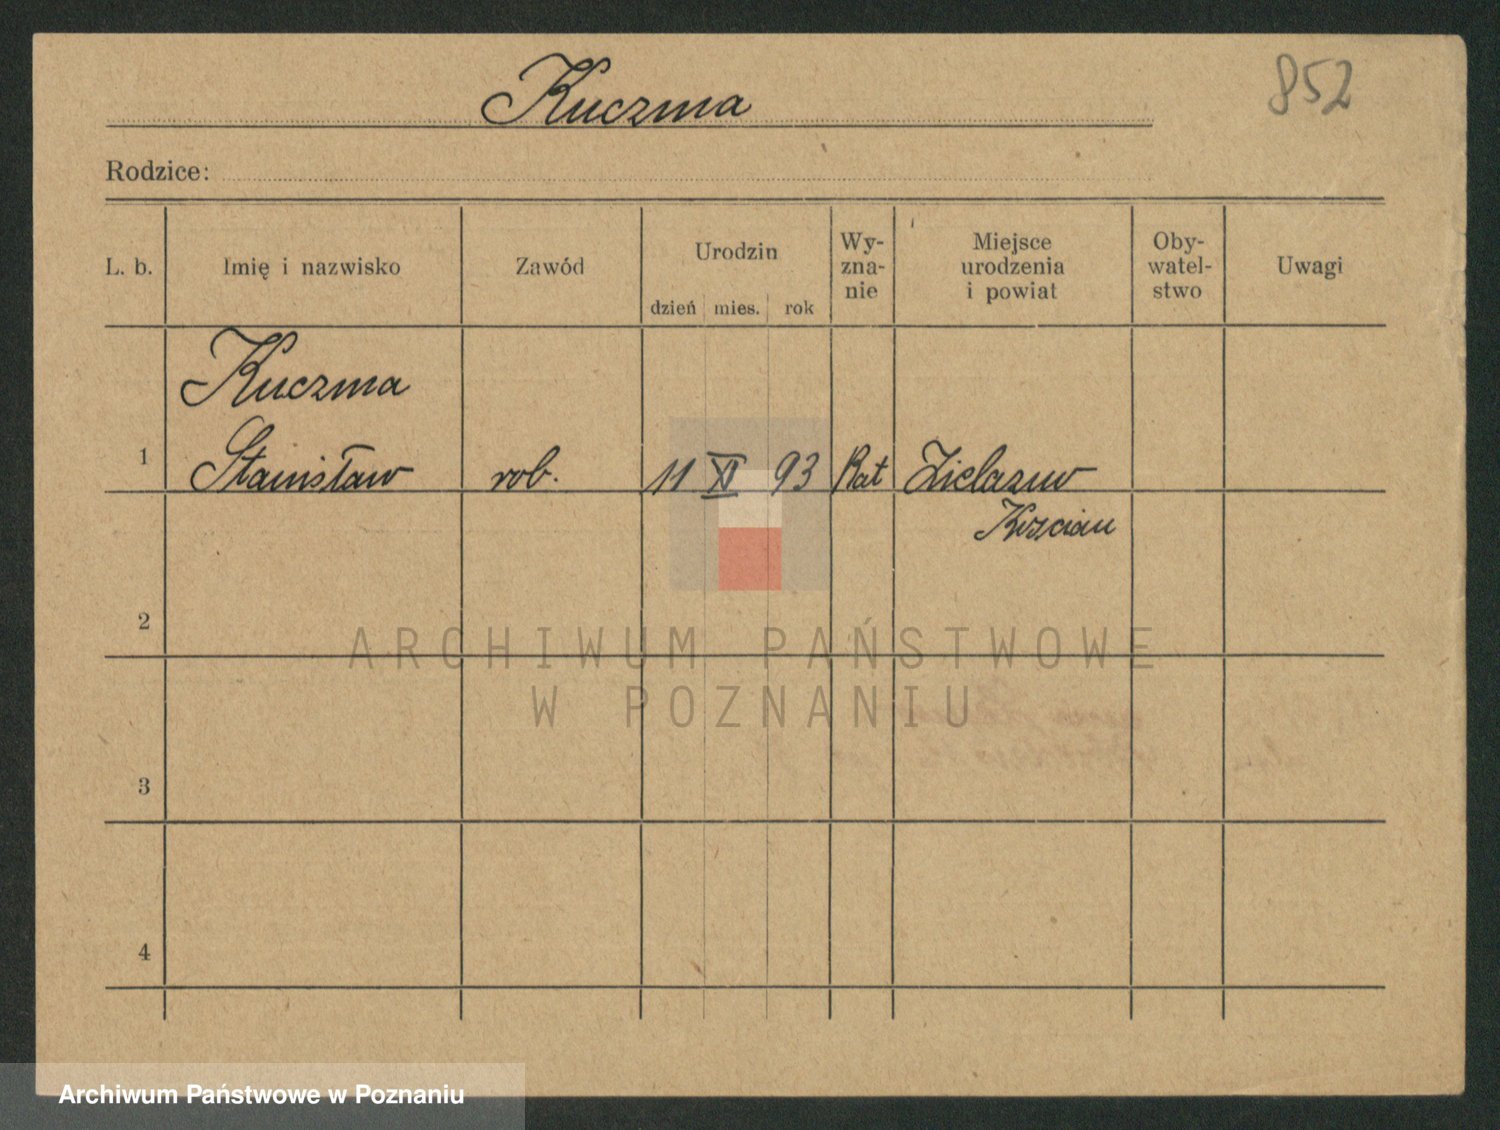 Kuczma
852
Rodzice:
L. b.
Imię i nazwisko
Zawód
Urodzin
dzień mies. rok
Wy-
zna-
nie
Miejsce
urodzenia
i powiat
Oby-
watel-
stwo
Uwagi
Kuczma
1 Stanisław rob. 11 XI 93 Kat
Kościan
2
3
4
ARCHIWUM PAŃSTWOWE
W POZNANIU
Archiwum Państwowe w Poznaniu